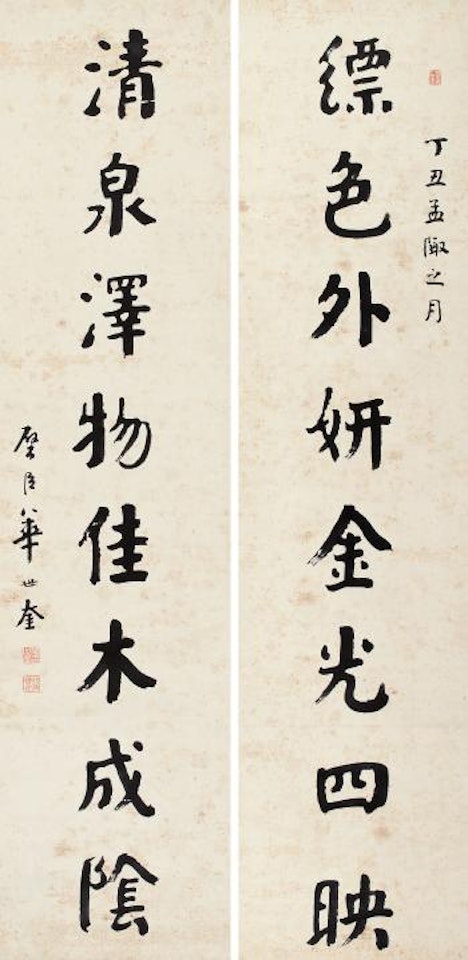 丁丑孟陬之月
縹色外妍金光四映
清泉澤物佳木成陰
璧臣華世奎